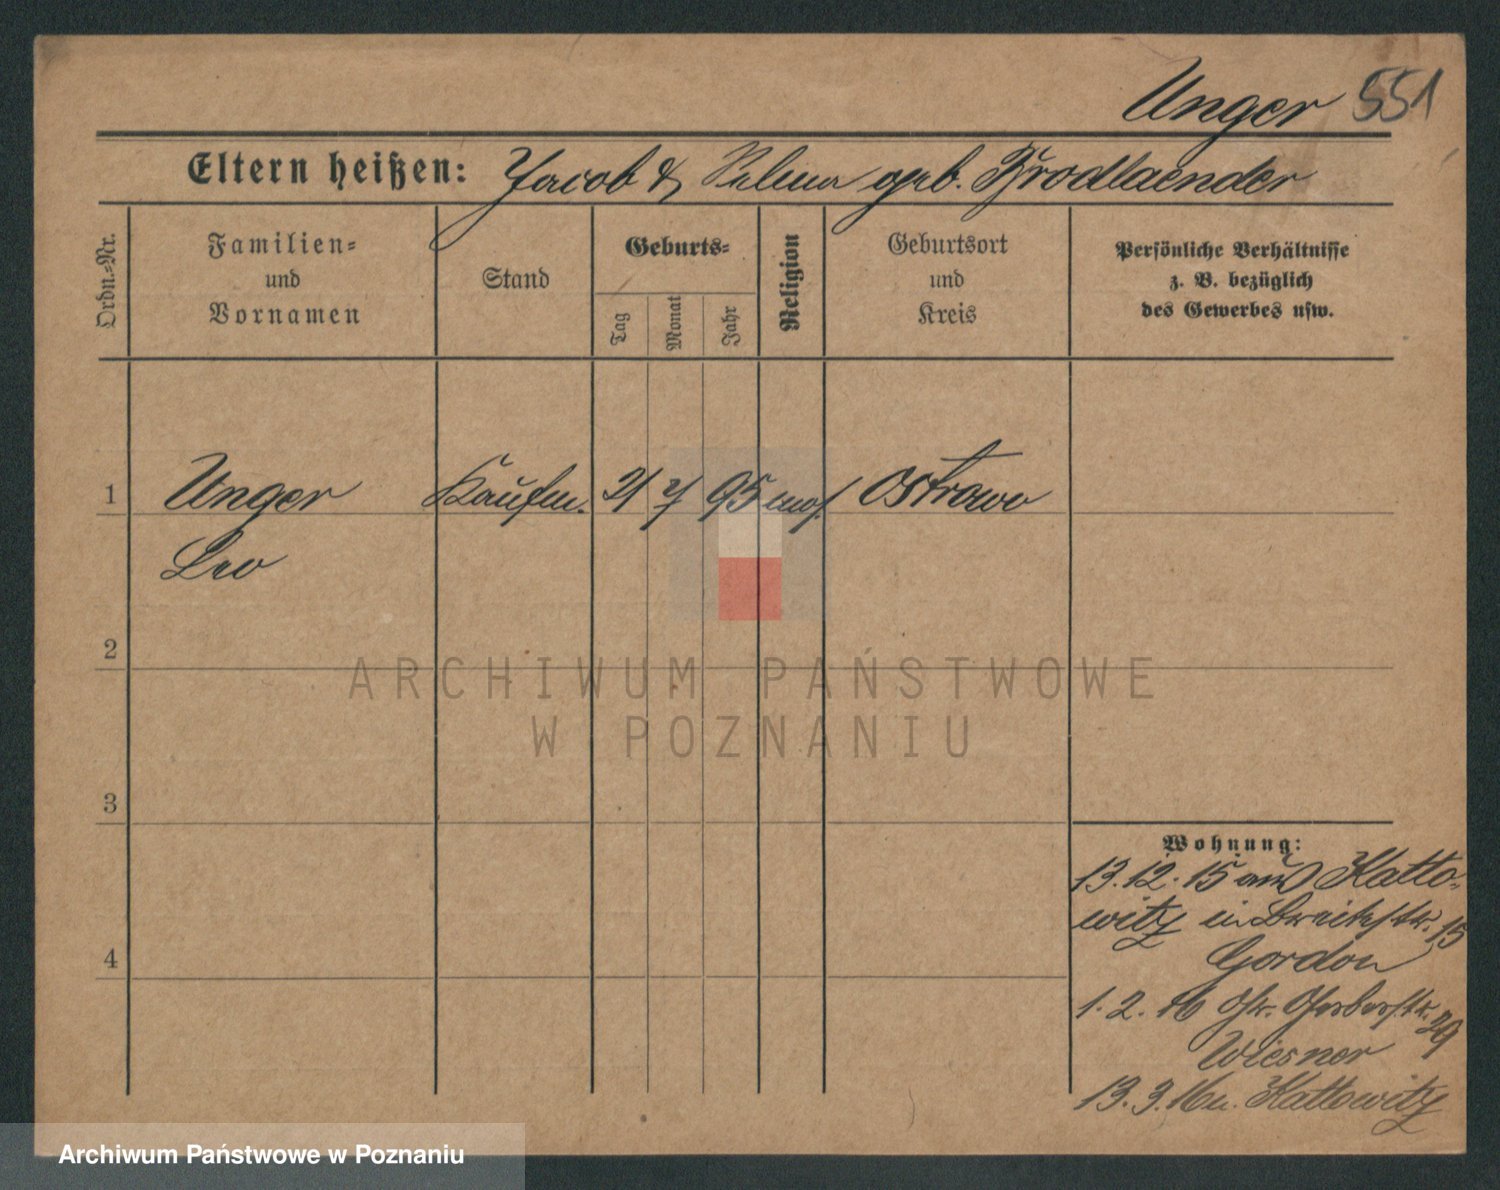 Unger 551
Eltern heißen: Jacob & Selma geb. Brodlaender
Ordn.=Nr.
Familien=
und
Vornamen
Stand
Geburts=
Tag
Monat
Jahr
Religion
Geburtsort
und
Kreis
Persönliche Verhältnisse
z. B. bezüglich
des Gewerbes usw.
1 Unger Kaufm. 21 7 95 mos. Ostrowo
Leo
2
3
4
Wohnung:
13.12.15 aus Katto-
witz in Breitestr. 15
Gordon
1.2.16 Gr. Gerberstr. 39
Wiesner
13.3.16 n. Kattowitz
ARCHIWUM PAŃSTWOWE
W POZNANIU
Archiwum Państwowe w Poznaniu